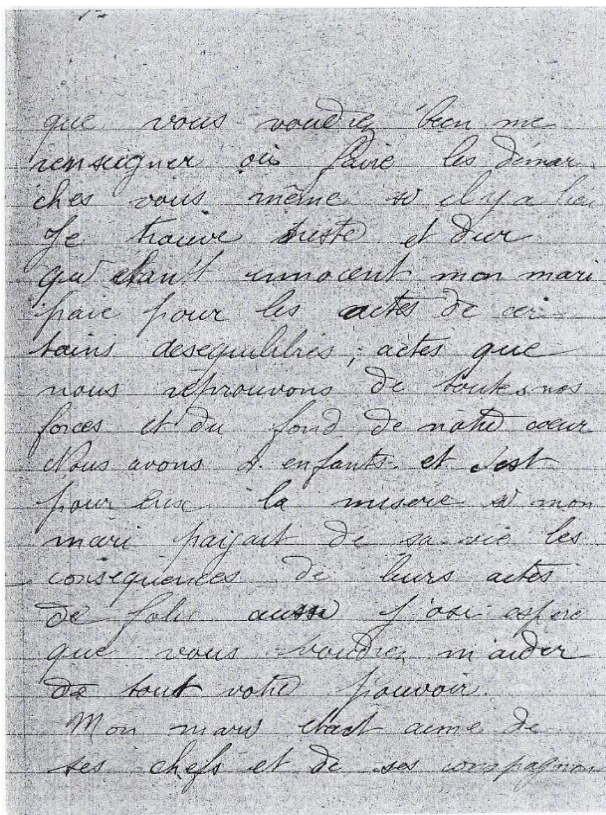 que vous voudrez bien me
renseigner où faire les démar
ches vous même si il y a lieu
Je trouve triste et dur
qu'étant innocent mon mari
paie pour les actes de cer
tains desequilibrés ; actes que
nous réprouvons de toute nos
forces et du fond de notre cœur
Nous avons enfants et s'est
pour eux la misère si mon
mari payait de sa vie les
consequences de leurs actes
de folie aussi j'ose espere
que vous voudrez m'aider
de tout votre pouvoir.
Mon mari était aimé de
ses chefs et de ses compagnons